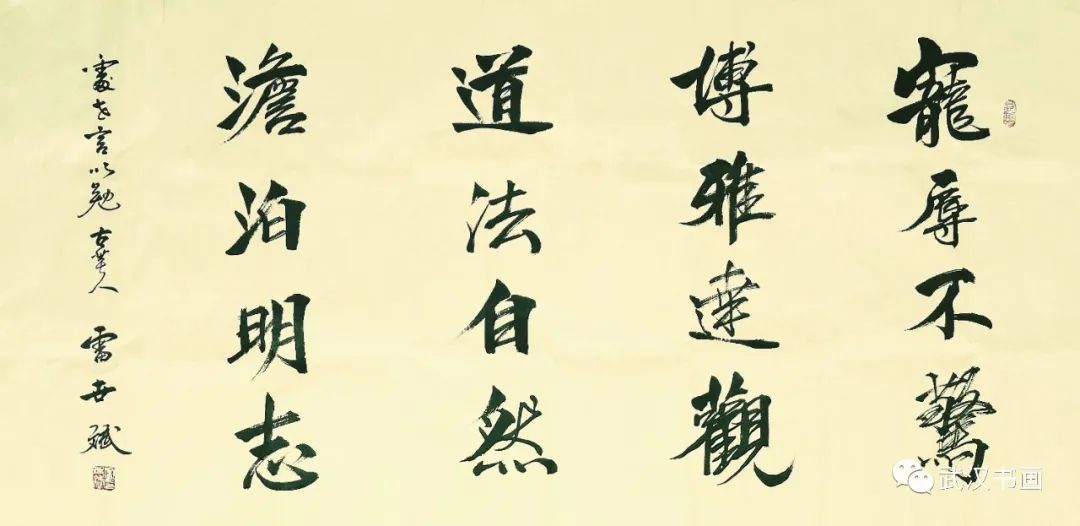 寵辱不驚
博雅達觀
道法自然
澹泊明志
處世言以勉 古華人 雷世斌
武汉书画